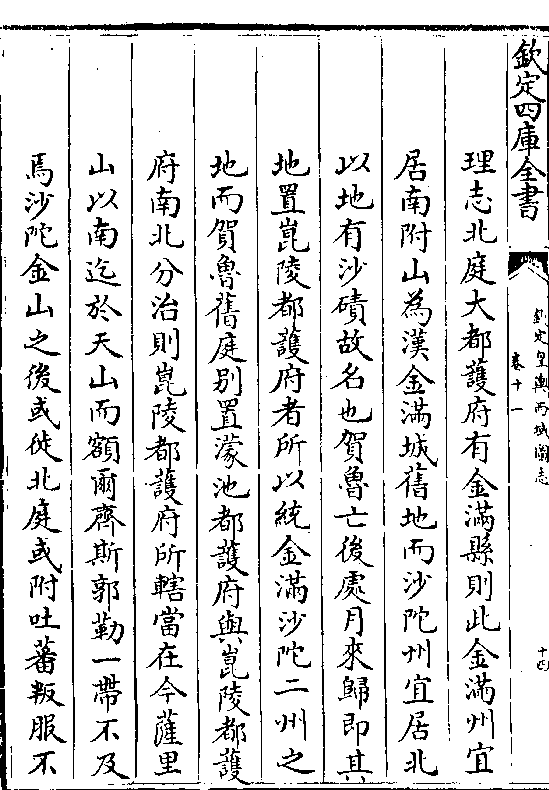 欽定四庫全書
欽定皇輿西域圖志
卷十一
十四
理志北庭大都護府有金滿縣則此金滿州宜
居南附山為漢金滿城舊地而沙陀州宜居北
以地有沙磧故名也賀魯亡後處月來歸即其
地置崑陵都護府者所以統金滿沙陀二州之
地而賀魯舊庭别置濛池都護府與崑陵都護
府南北分治則崑陵都護府所轄當在今薩里
山以南迄於天山而額爾齊斯郭勒一帶不及
焉沙陀金山之後或徙北庭或附吐蕃叛服不